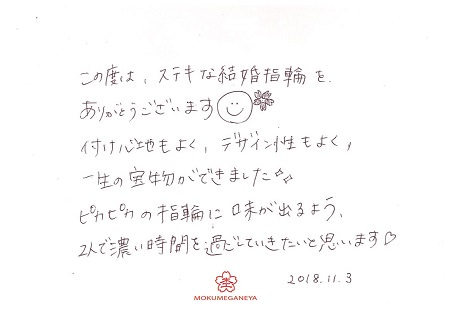 この度は、ステキな結婚指輪を、
ありがとうございます
付け心地もよく、デザイン性もよく、
一生の宝物ができました
ピカピカの指輪に味が出るよう、
2人で濃い時間を過ごしていきたいと思います♡
2018.11.3
MOKUMEGANEYA